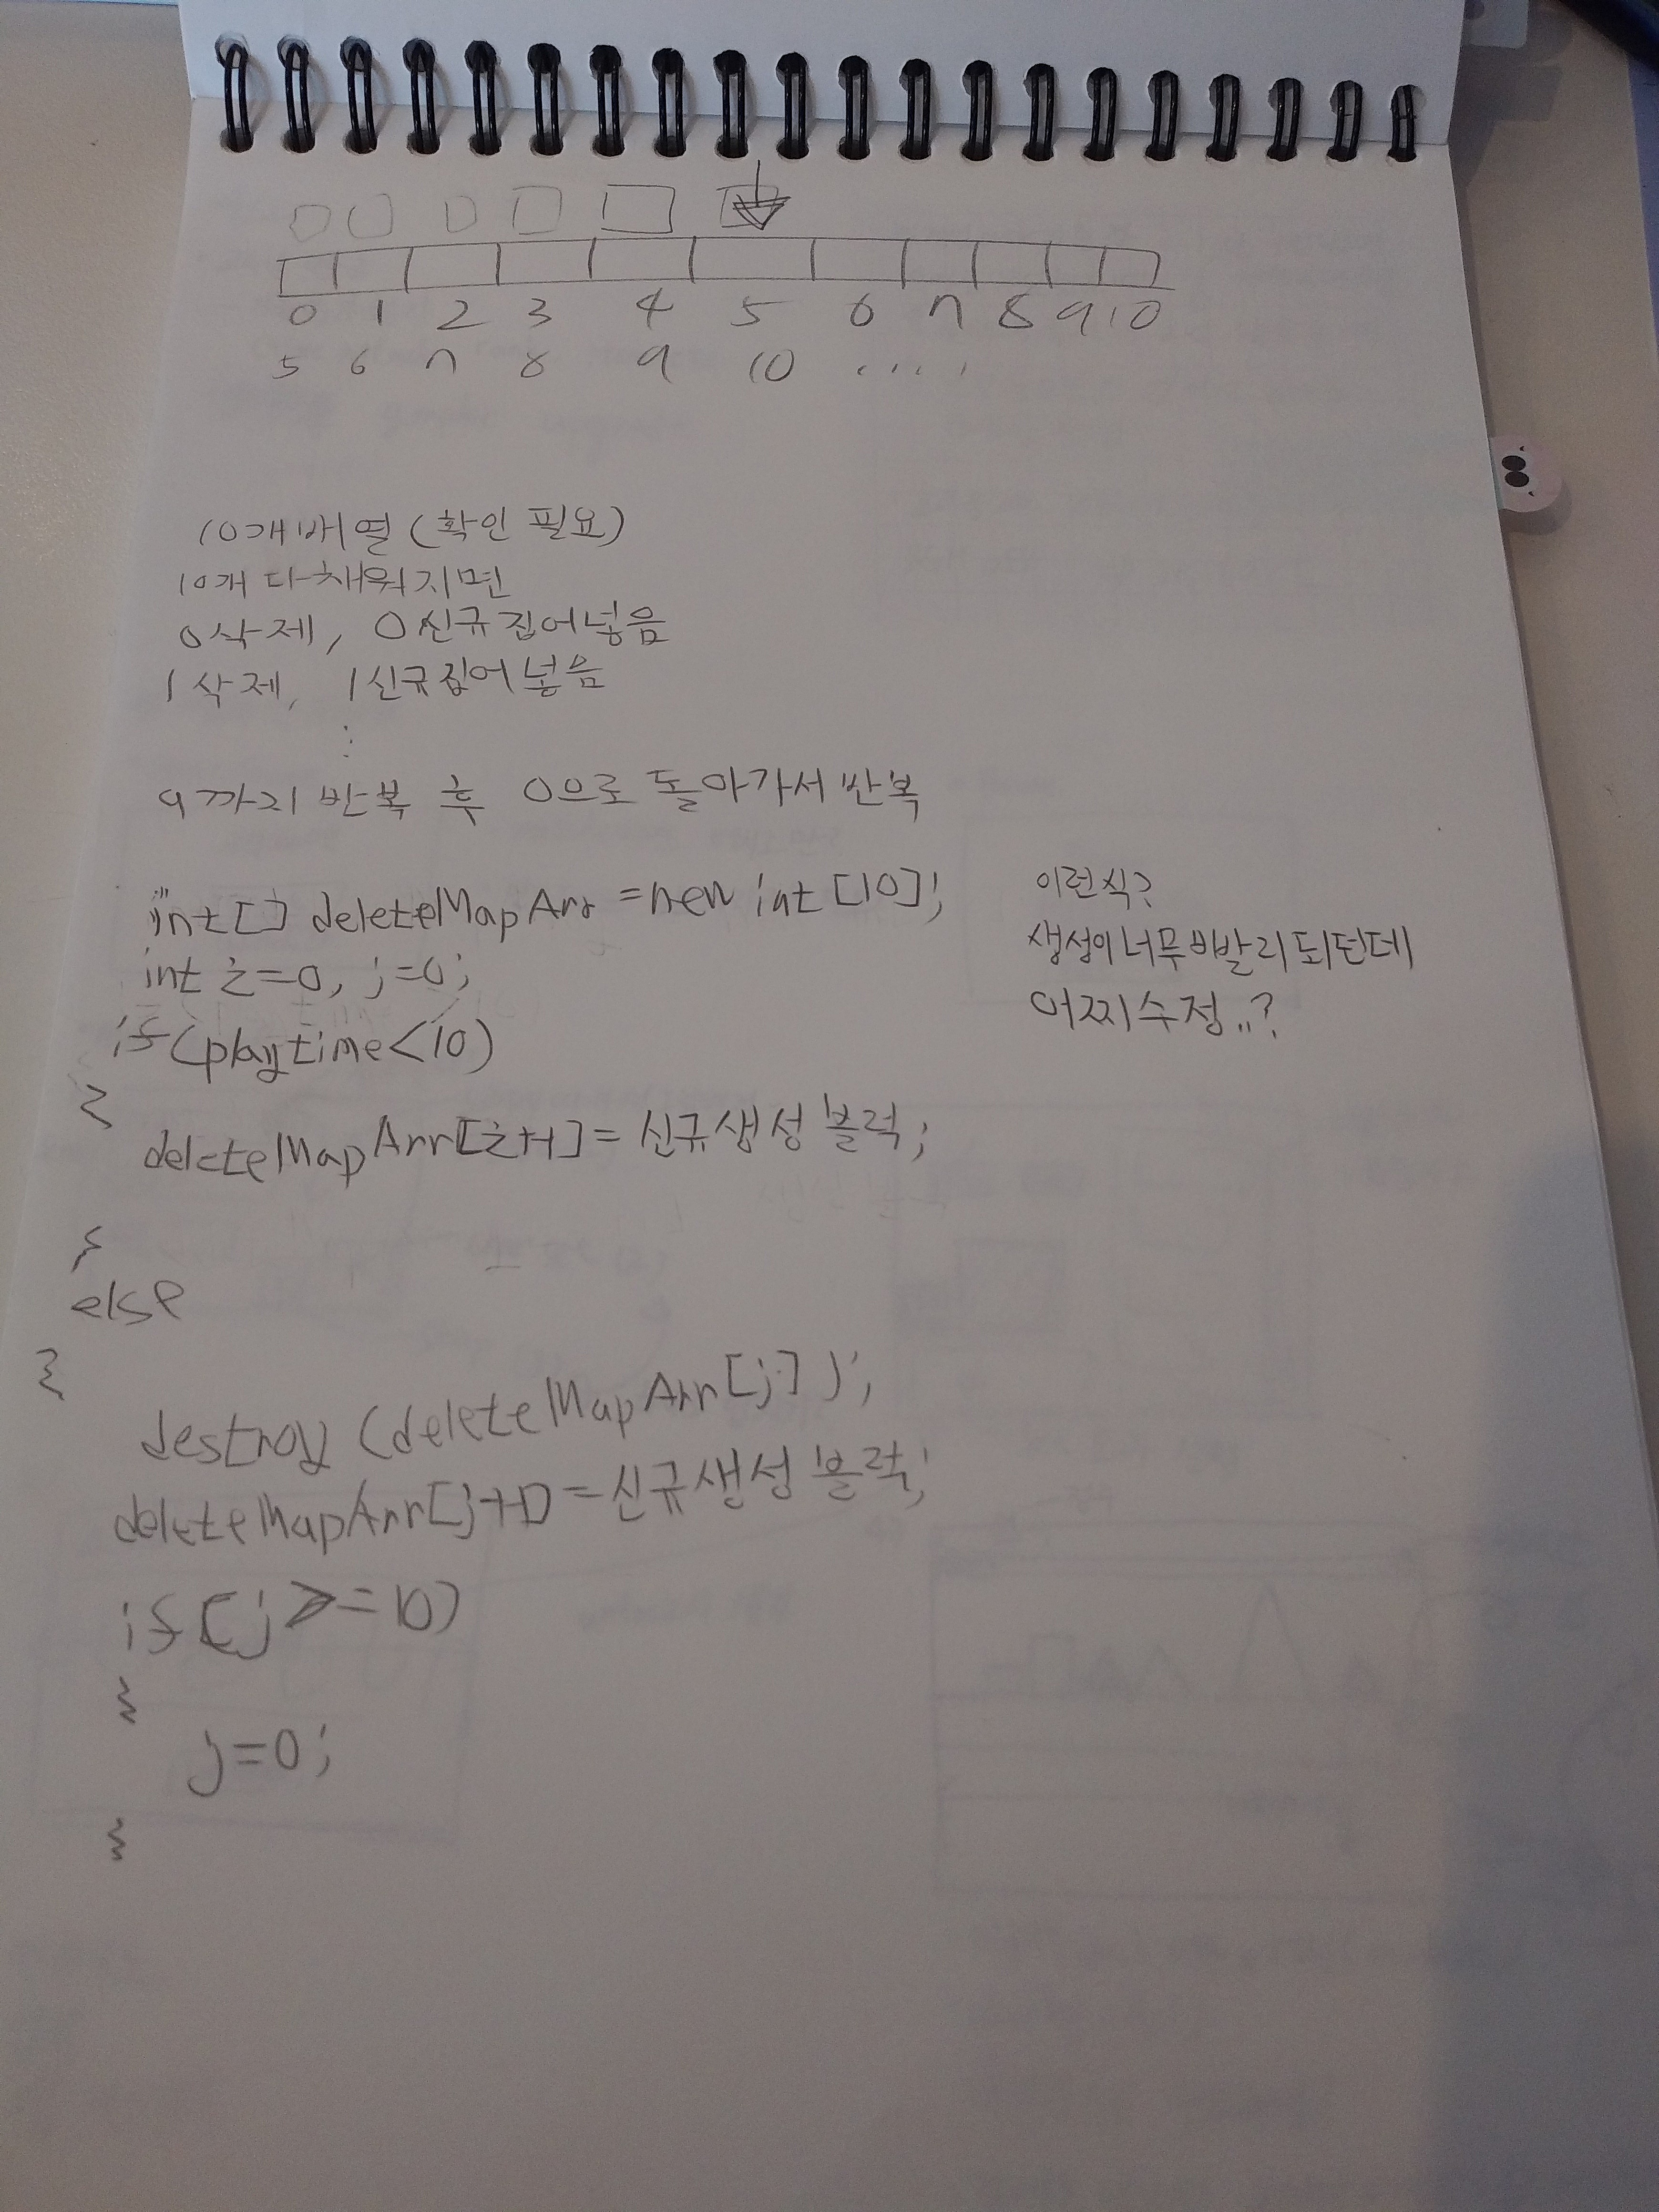 0 1 2 3 4 5 6 7 8 9 10
5 6 7 8 9 10 ....
10개 배열 (확인 필요)
10개 다 채워지면
0 삭제, 0 신규 집어넣음
1 삭제, 1 신규 집어넣음
⋮
9까지 반복 후 0으로 돌아가서 반복
int[] deleteMapArr = new int [10];
int i=0, j=0;
if (playtime<10)
{
deleteMapArr[i++] = 신규생성 블럭;
}
else
{
destroy (deleteMapArr[j]);
deleteMapArr[j++] = 신규생성 블럭;
if (j>=10)
{
j=0;
}
이런식?
생성이 너무 빨리 되던데
어찌 수정..?